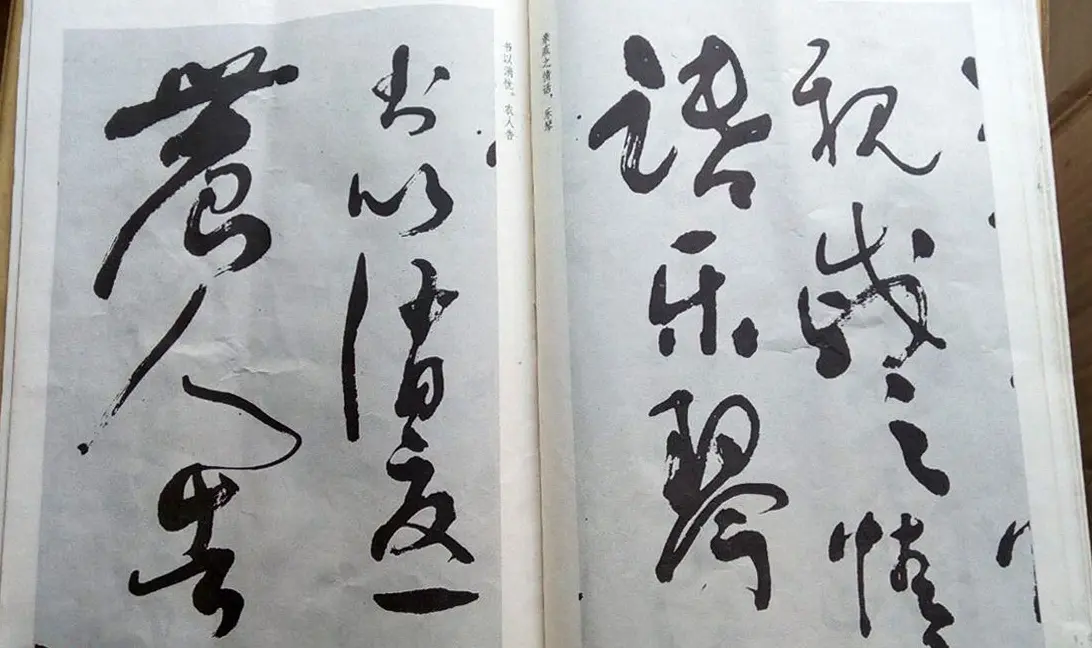 親戚之情
話乐琴
亲戚之情话，乐琴
书以消忧。农人告
书以消憂
農人告